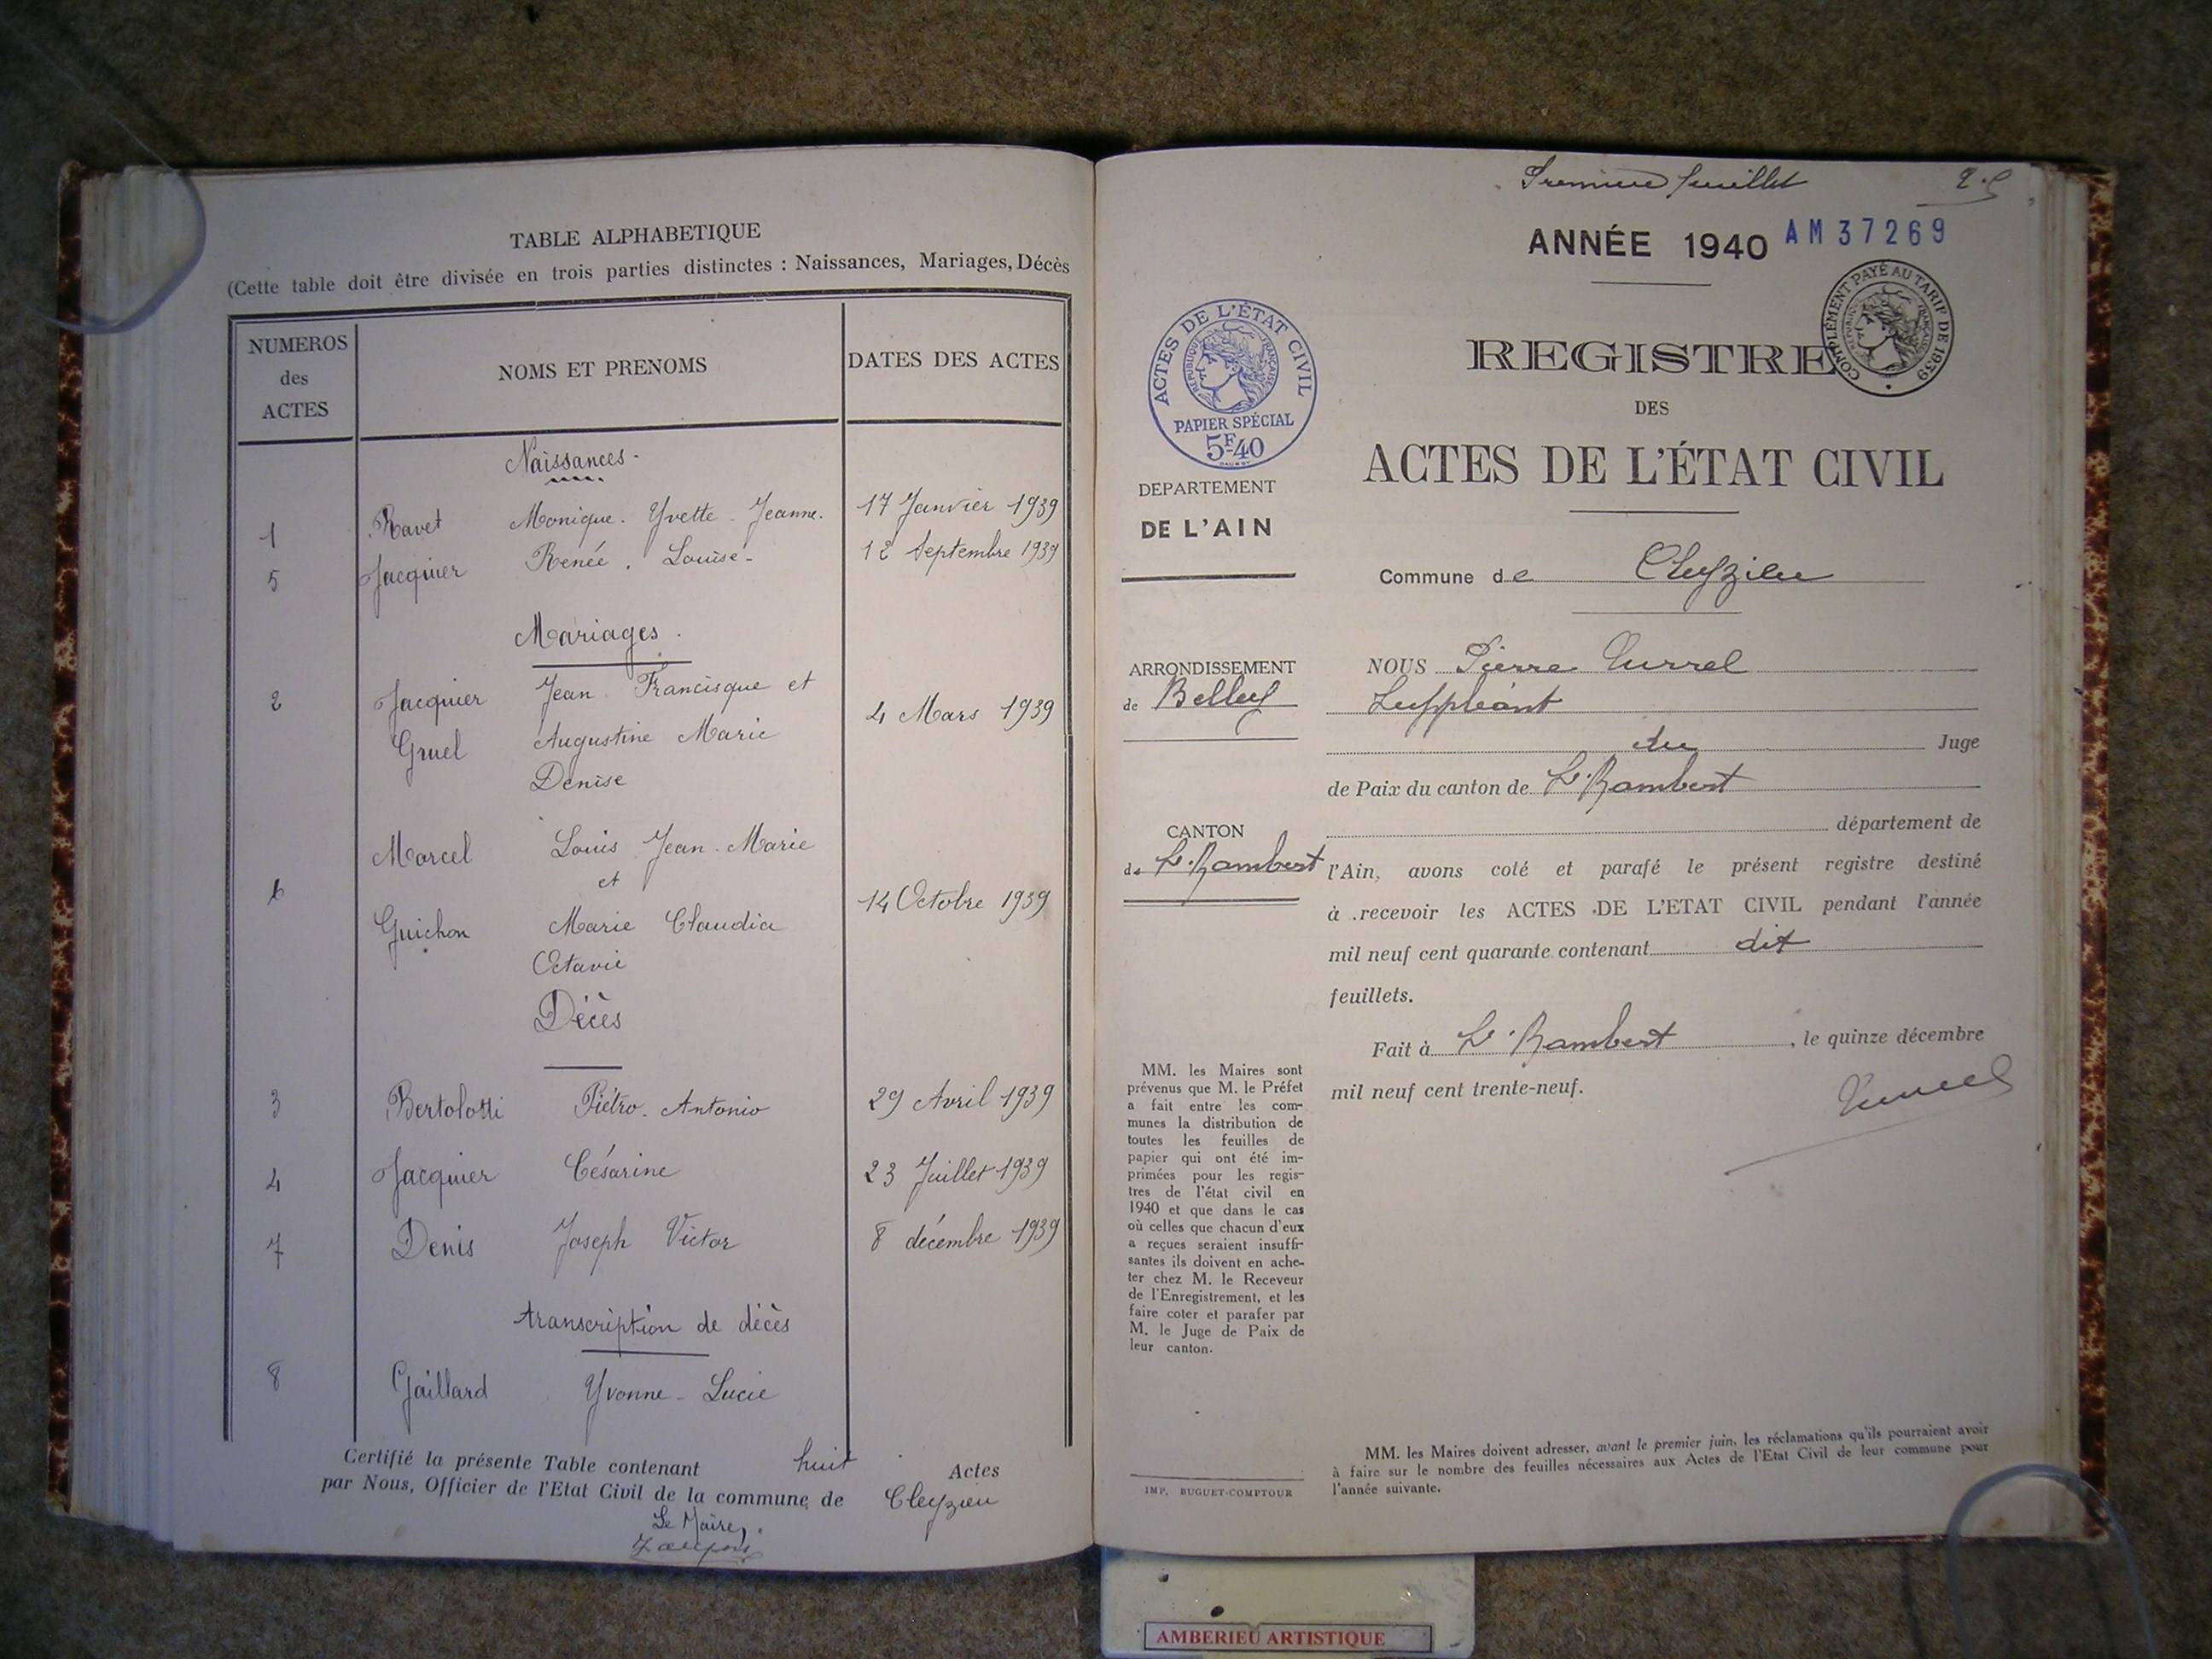 TABLE ALPHABETIQUE
(Cette table doit être divisée en trois parties distinctes : Naissances, Mariages, Décès
NUMEROS des ACTES
NOMS ET PRENOMS
DATES DES ACTES
Naissances
1 Ravet Monique. Yvette - Jeanne. 17 Janvier 1939
5 Jacquier Renée, Louise 12 Septembre 1939
Mariages.
2 Jacquier Jean Francisque et
Gruel Augustine Marie 4 Mars 1939
Denise
Marcel Louis Jean-Marie
et
6 Guichon Marie Claudia 14 Octobre 1939
Octavie
Décès
3 Bertolotti Piétro. Antonio 29 Avril 1939
4 Jacquier Césarine 23 Juillet 1939
7 Denis Joseph Victor 8 décembre 1939
transcription de décès
8 Gaillard Yvonne - Lucie
Certifié la présente Table contenant huit Actes
par Nous, Officier de l'Etat Civil de la commune de Cleyzieu
Le Maire,
Premier feuillet
ANNÉE 1940 AM37269
COMPLÉMENT PAYÉ AU TARIF DE 1939
RÉPUBLIQUE FRANÇAISE
ACTES DE L'ÉTAT CIVIL
RÉPUBLIQUE FRANÇAISE
PAPIER SPÉCIAL
5F40
DEPARTEMENT
DE L'AIN
ARRONDISSEMENT
de Belley
CANTON
de St Rambert
MM. les Maires sont
prévenus que M. le Préfet
a fait entre les com-
munes la distribution de
toutes les feuilles de
papier qui ont été im-
primées pour les regis-
tres de l'état civil en
1940 et que dans le cas
où celles que chacun d'eux
a reçues seraient insuffi-
santes ils doivent en ache-
ter chez M. le Receveur
de l'Enregistrement, et les
faire coter et parafer par
M. le Juge de Paix de
leur canton.
IMP. BUGUET-COMPTOUR
REGISTRE
DES
ACTES DE L'ÉTAT CIVIL
Commune de Cleyzieu
NOUS Pierre Turrel
Suppléant
du Juge
de Paix du canton de St Rambert
département de
l'Ain, avons coté et parafé le présent registre destiné
à recevoir les ACTES DE L'ETAT CIVIL pendant l'année
mil neuf cent quarante contenant dix
feuillets.
Fait à St Rambert, le quinze décembre
mil neuf cent trente-neuf.
Turrel
MM. les Maires doivent adresser, avant le premier juin, les réclamations qu'ils pourraient avoir
à faire sur le nombre des feuilles nécessaires aux Actes de l'Etat Civil de leur commune pour
l'année suivante.
AMBERIEU ARTISTIQUE